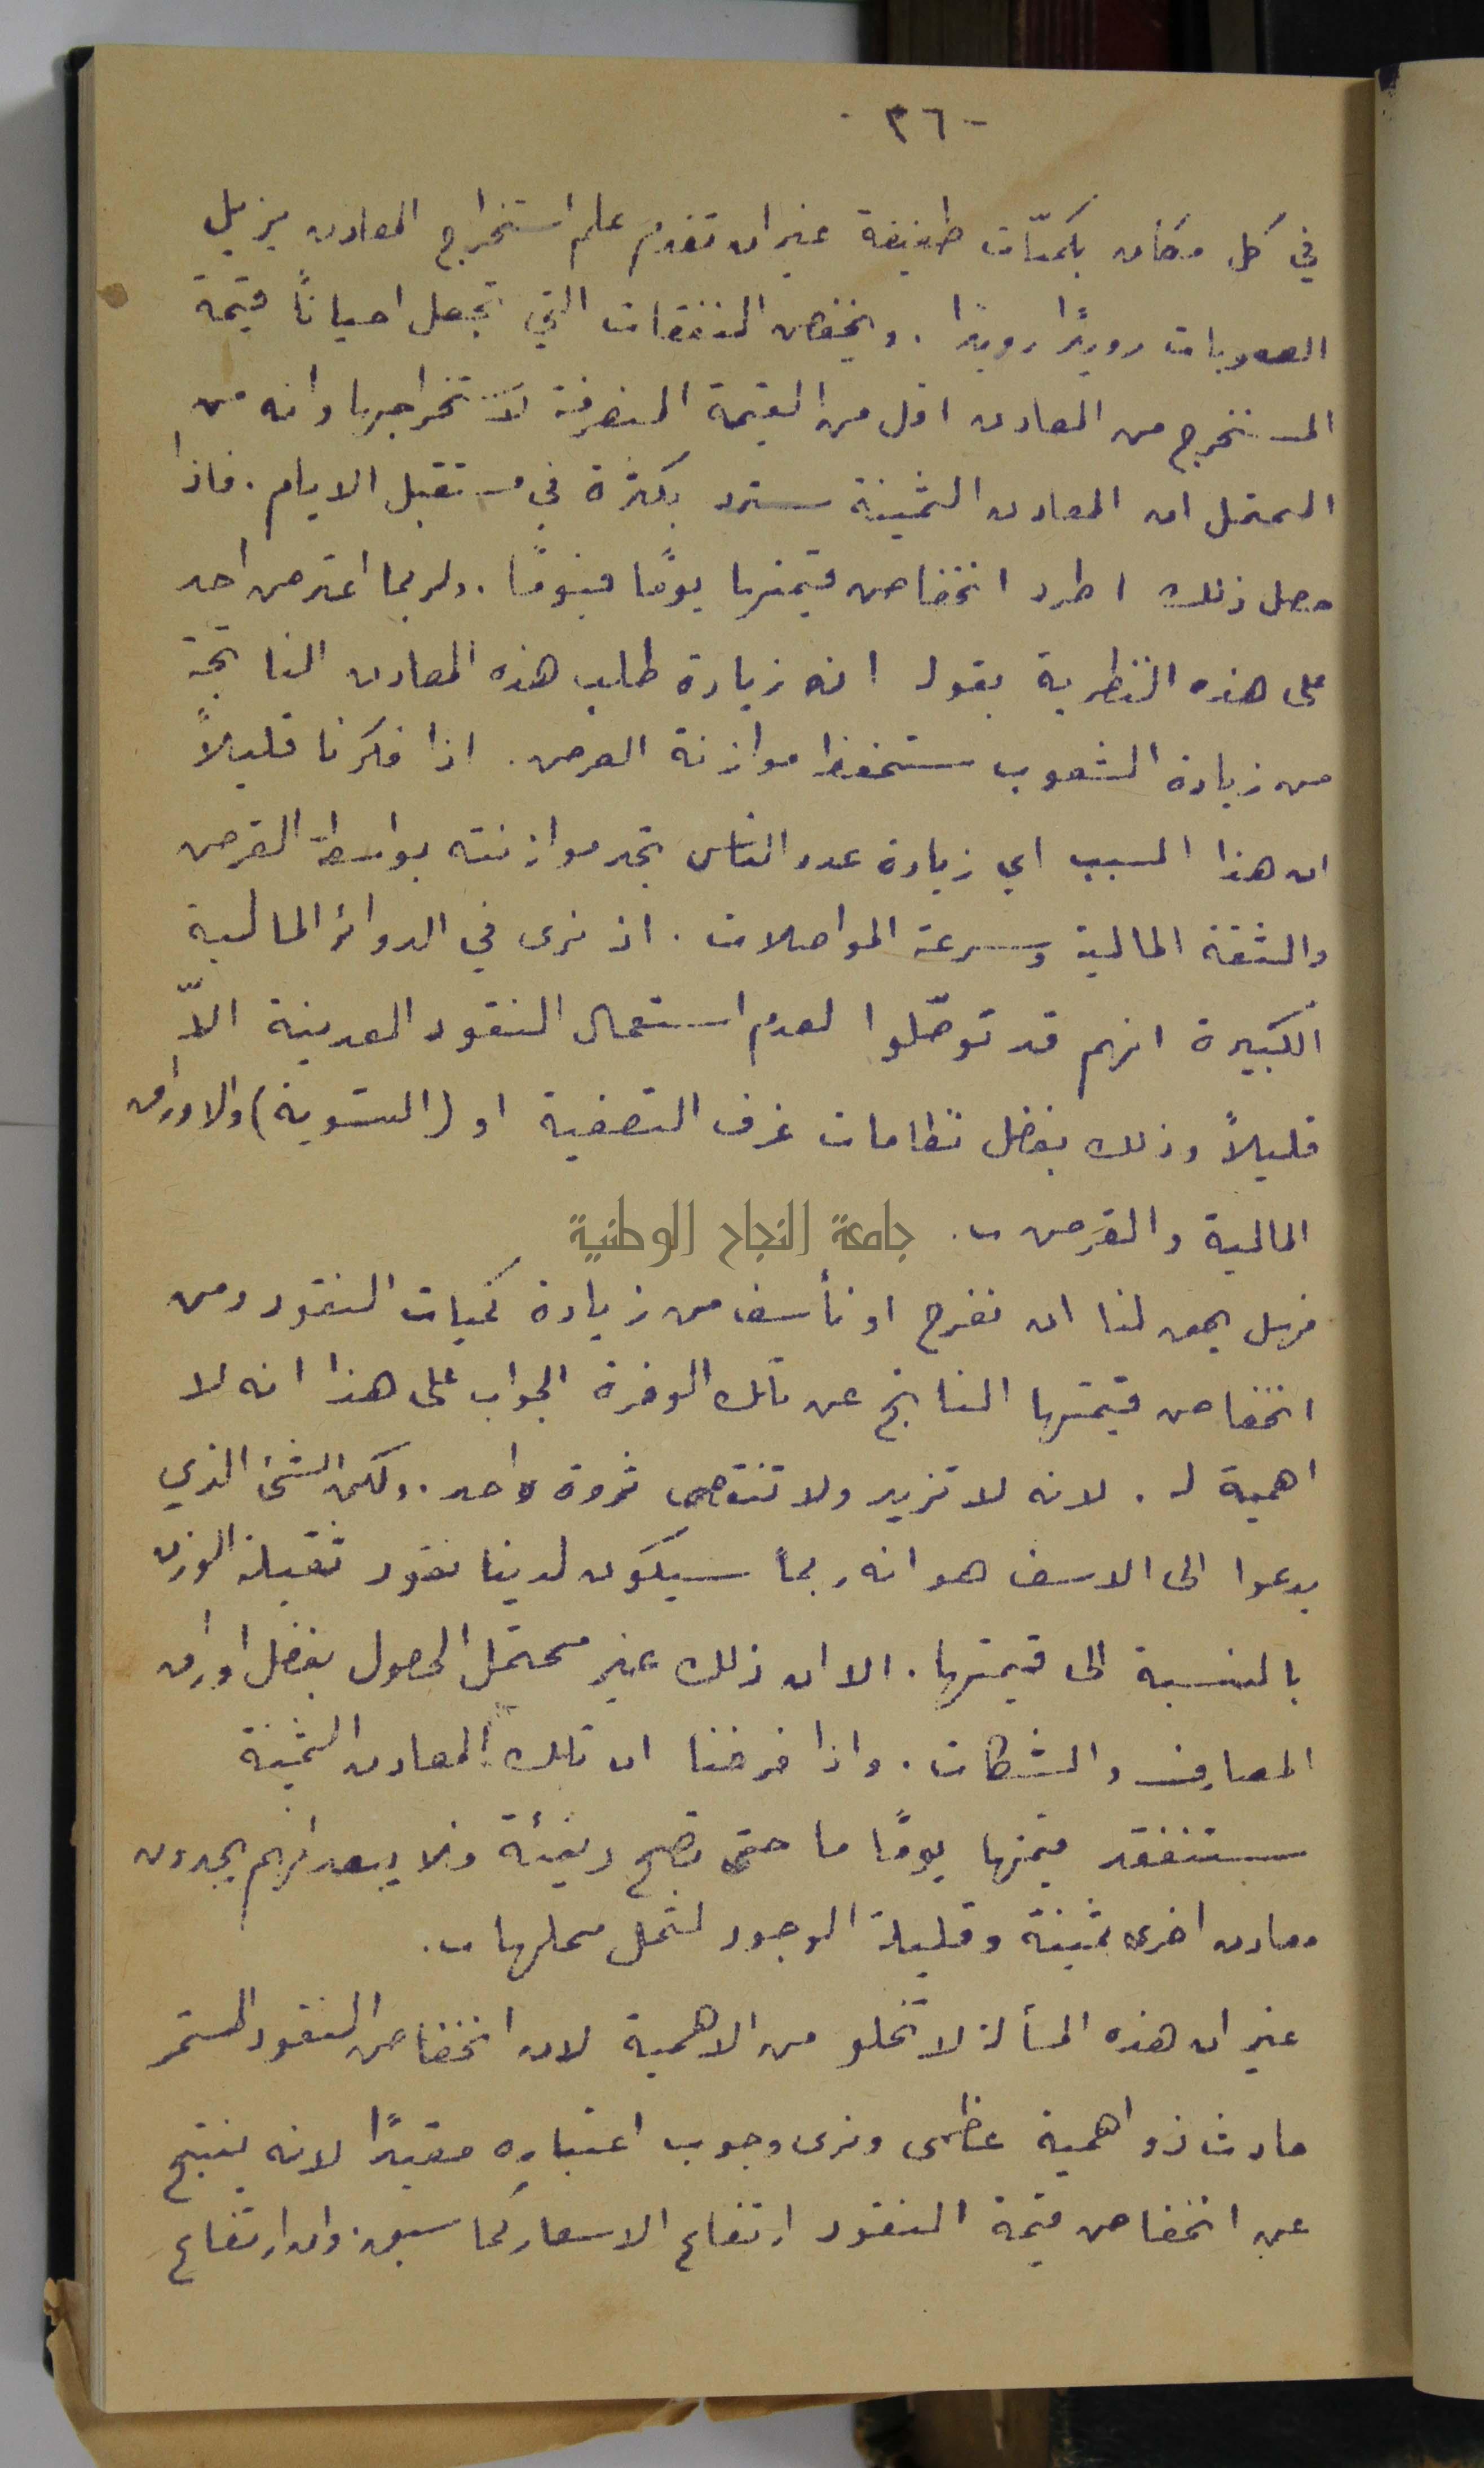 - ٣٦ -
في كل مكان بكميّات طفيفة غير ان تقدم علم استخراج المعادن يزيل
الصعوبات رويدًا رويدًا . ويخفض النفقات التي تجعل احيانًا قيمة
المستخرج من المعادن اقل من القيمة المصرفة لاستخراجها وانه من
المحتمل ان المعادن الثمينة سترد بكثرة في مستقبل الايام . فاذا
حصل ذلك اطرد انخفاض قيمتها يومًا فيومًا . ولربما اعترض احد
على هذه النظرية بقول انه زيادة طلب هذه المعادن الناتجة
من زيادة الشعوب ستحفظ موازنة العرض . اذا فكرنا قليلاً
ان هذا السبب اي زيادة عدد الناس تجد موازنته بواسطة القرض
والثقة المالية وسرعة المواصلات . اذ نرى في الدوائر المالية
الكبيرة انهم قد توصّلوا لعدم استعمال النقود المعدنية الاّ
قليلاً وذلك بفضل نظامات غرف التصفية او (التسوية) والاوراق
المالية والقرض .
جامعة النجاح الوطنية
فهل يحق لنا ان نفرح او نأسف من زيادة كميات النقود ومن
انخفاض قيمتها الناتج عن تلك الوفرة الجواب على هذا انه لا
اهمية له . لانه لا تزيد ولا تنتقص ثروة واحد . ولكن الشئ الذي
يدعوا الى الاسف هو انه ربما سيكون لدينا نقود ثقيلة الوزن
بالنسبة الى قيمتها . الا ان ذلك غير محتمل الحصول بفضل اوراق
المصارف والشكات . واذا فرضنا ان تلك المعادن الثمينة
ستفقد قيمتها يومًا ما حتى تصبح دنيئة فلا يبعد انهم يجدون
معادن اخرى ثمينة وقليلة الوجود لتحل محلها .
غير ان هذه المسألة لا تخلو من الاهمية لان انخفاض النقود المستمر
حادث ذو اهمية عظمى ونرى وجوب اعتباره مقيدًا لانه ينتج
عن انخفاض قيمة النقود ارتفاع الاسعار كما سبق . وان ارتفاع